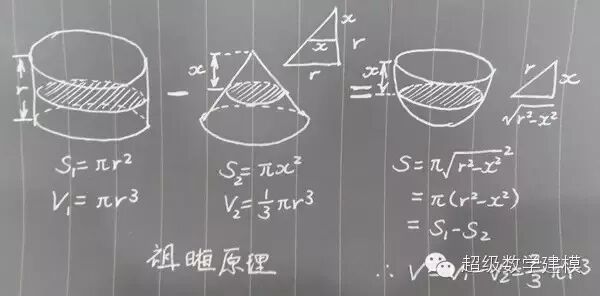 r
x
x
x
r
r
x
r
x
√r²-x²
S₁=πr²
V₁=πr³
S₂=πx²
V₂=1/3πr³
S=π√r²-x²²
=π(r²-x²)
=S₁-S₂
∴ V=V₁-V₂=2/3πr³
祖暅原理
超级数学建模